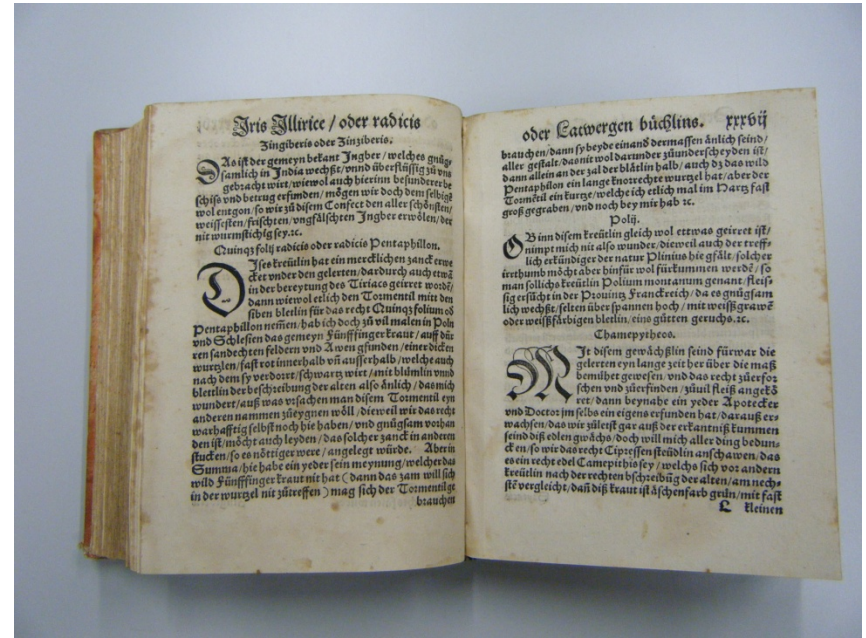 Iris Illirice / oder radicis
Zingiberis oder Zinziberis.
DAs ist der gemeyn bekant Ingber / welches gnůg-
samlich in India wechßt / vnnd überflüssig zů vns
gebracht wirt / wiewol auch hierinn besunderer be
schiss vnd betrug erfunden / mögen wir doch dem selbigē
wol entgon / so wir zů disem Confect den aller schönsten /
weissesten / frischten / vngfälschten Ingber erwölen / der
nit wurmstichig sey. ꝛc.
Quinqꝫ folij radicis oder radicis Pentaphillon.
DIses kreütlin hat ein mercklichen zanck erwe
cket vnder den gelerten / dardurch auch etwā
in der bereytung des Tiriacs geirret wordē /
dann wiewol etlich den Tormentil mit den
siben bletlin für das recht Quinqꝫ folium oð
Pentaphillon neñen / hab ich doch zů vil malen in Poln
vnd Schlesien das gemeyn Fünfffinger kraut / auff dür
ren sandechten feldern vnd Awen gfunden / einer dicken
wurtzlen / fast rot innerhalb vñ ausserhalb / welche auch
nach dem sy verdorrt / schwartz wirt / mit blümlin vnnd
blettlin der beschreibung der alten also änlich / das mich
wundert / auß was vrsachen man disem Tormentil eyn
anderen nammen zůeygnen wöll / dieweil wir das recht
warhafftig selbst noch hie haben / vnd gnůgsam vorhan
den ist / möcht auch leyden / das solcher zanck in anderen
stucken / so es nöttiger were / angelegt würde. Aber in
Summa / hie habe ein yeder sein meynung / welcher das
wild Fünfffinger kraut nit hat ( dann das zam will sich
in der wurtzel nit zůtreffen ) mag sich der Tormentil ge
brauchen
oder Latwergen büchlins. xxxvij
brauchen / dann sy beyde einanď dermassen änlich seind /
aller gestalt / das nit wol darunder zůunderscheyden ist /
dann allein an der zal der blätlin halb / auch dz das wild
Pentaphilon ein lange knorrechte wurtzel hat / aber der
Tormētil ein kurtze / welche ich etlich mal im Hartz fast
groß gegraben / vnd noch bey mir hab ꝛc.
Polij.
OB inn disem kreütlin gleich wol ettwas geirret ist /
nimpt mich nit also wunder / dieweil auch der treff-
lich erkündiger der natur Plinius hie gfält / solcher
irrthumb möcht aber hinfür wol fürkummen werdē / so
man sollichs kreütlin Polium montanum genant / fleis-
sig ersücht in der Prouintz Franckreich / da es gnůgsam
lich wechßt / selten über spannen hoch / mit weißgrawē
oder weißfärbigen bletlin / eins gütten geruchs. ꝛc.
Chamepytheos.
MIt disem gewächßlin seind fürwar die
gelerten eyn lange zeit her über die maß
bemühet gewesen / vnd das recht zůerfor
schen vnd zůerfinden / zůuil fleiß angekö
ret / dann beynahe ein yeder Apotecker
vnd Doctor jm selbs ein eigens erfunden hat / darauß er-
wachsen / das wir zůletst gar auß der erkantniß kummen
seind diß edlen gwächs / doch will mich aller ding bedun-
cken / so wir das recht Cipressen steüdlin anschawen / das
es ein recht edel Camepithis sey / welchs sich vor andern
kreütlin nach der rechten bschreibūg der alten / am nech-
stē vergleicht / dañ diß kraut ist äschenfarb grün / mit fast
L kleinen